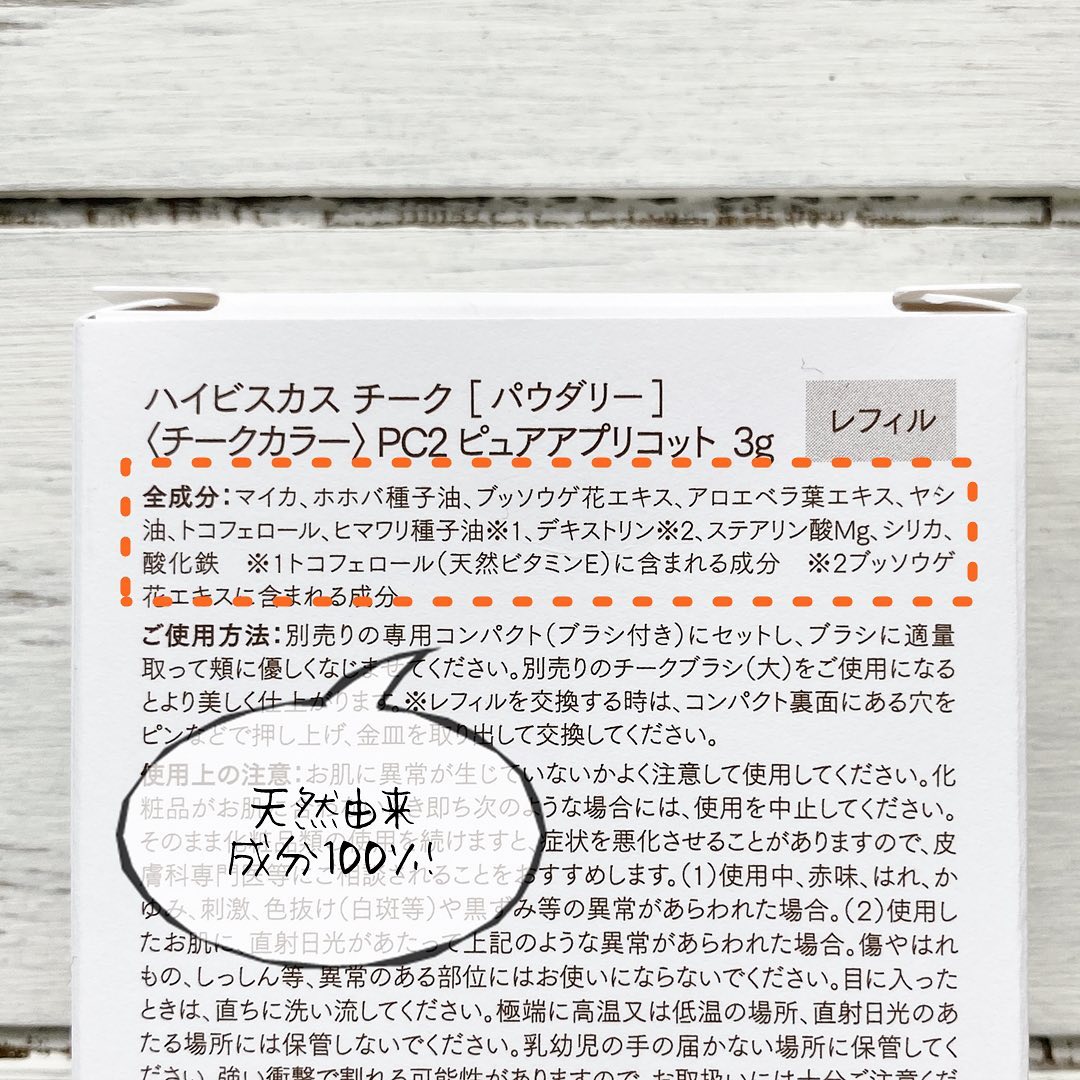 ハイビスカス チーク [ パウダリー ]
〈チークカラー〉PC2 ピュアアプリコット 3g
レフィル
全成分：マイカ、ホホバ種子油、ブッソウゲ花エキス、アロエベラ葉エキス、ヤシ
油、トコフェロール、ヒマワリ種子油※1、デキストリン※2、ステアリン酸Mg、シリカ、
酸化鉄 ※1トコフェロール（天然ビタミンE）に含まれる成分 ※2ブッソウゲ
花エキスに含まれる成分
ご使用方法：別売りの専用コンパクト（ブラシ付き）にセットし、ブラシに適量
取って頬に優しくなじませてください。別売りのチークブラシ（大）をご使用になる
とより美しく仕上がります。※レフィルを交換する時は、コンパクト裏面にある穴を
ピンなどで押し上げ、金皿を取り出して交換してください。
使用上の注意：お肌に異常が生じていないかよく注意して使用してください。化
粧品がお肌に き即ち次のような場合には、使用を中止してください。
そのまま化粧品類の使用を続けますと、症状を悪化させることがありますので、皮
膚科専門医等にご相談されることをおすすめします。（1）使用中、赤味、はれ、か
ゆみ、刺激、色抜け（白斑等）や黒ずみ等の異常があらわれた場合。（2）使用し
たお肌に、直射日光があたって上記のような異常があらわれた場合。傷やはれ
もの、しっしん等、異常のある部位にはお使いにならないでください。目に入った
ときは、直ちに洗い流してください。極端に高温又は低温の場所、直射日光のあ
たる場所には保管しないでください。乳幼児の手の届かない場所に保管してく
ださい。強い衝撃で割れる可能性がありますので、お取扱いには十分ご注意くだ
天然由来
成分100%!